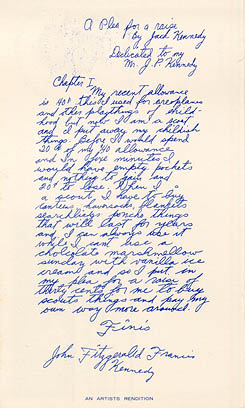 A Plea for a raise
By Jack Kennedy
Dedicated to my
Mr. J. P. Kennedy
Chapter I
My recent allowance
is 40¢ this I used for areoplanes
and other playthings of child-
hood but now I am a scout
and I put away my childish
things. Before I would spend
20¢ of my 40¢ allowance
and In five minutes I
would have empty pockets
and nothing to gain and
20¢ to lose. When I
a scout I have to buy
canteens, haversacks, blankets
searchliegs poncho things
that will last for years
and I can always use it
while I cant use a
chocolate marshmellow
sunday with vanilla ice
cream and so I put in
my plea for a raise of
thirty cents for me to buy
scouts things and pay my
own way more around.
Finis
John Fitzgerald Francis
Kennedy
AN ARTISTS RENDITION